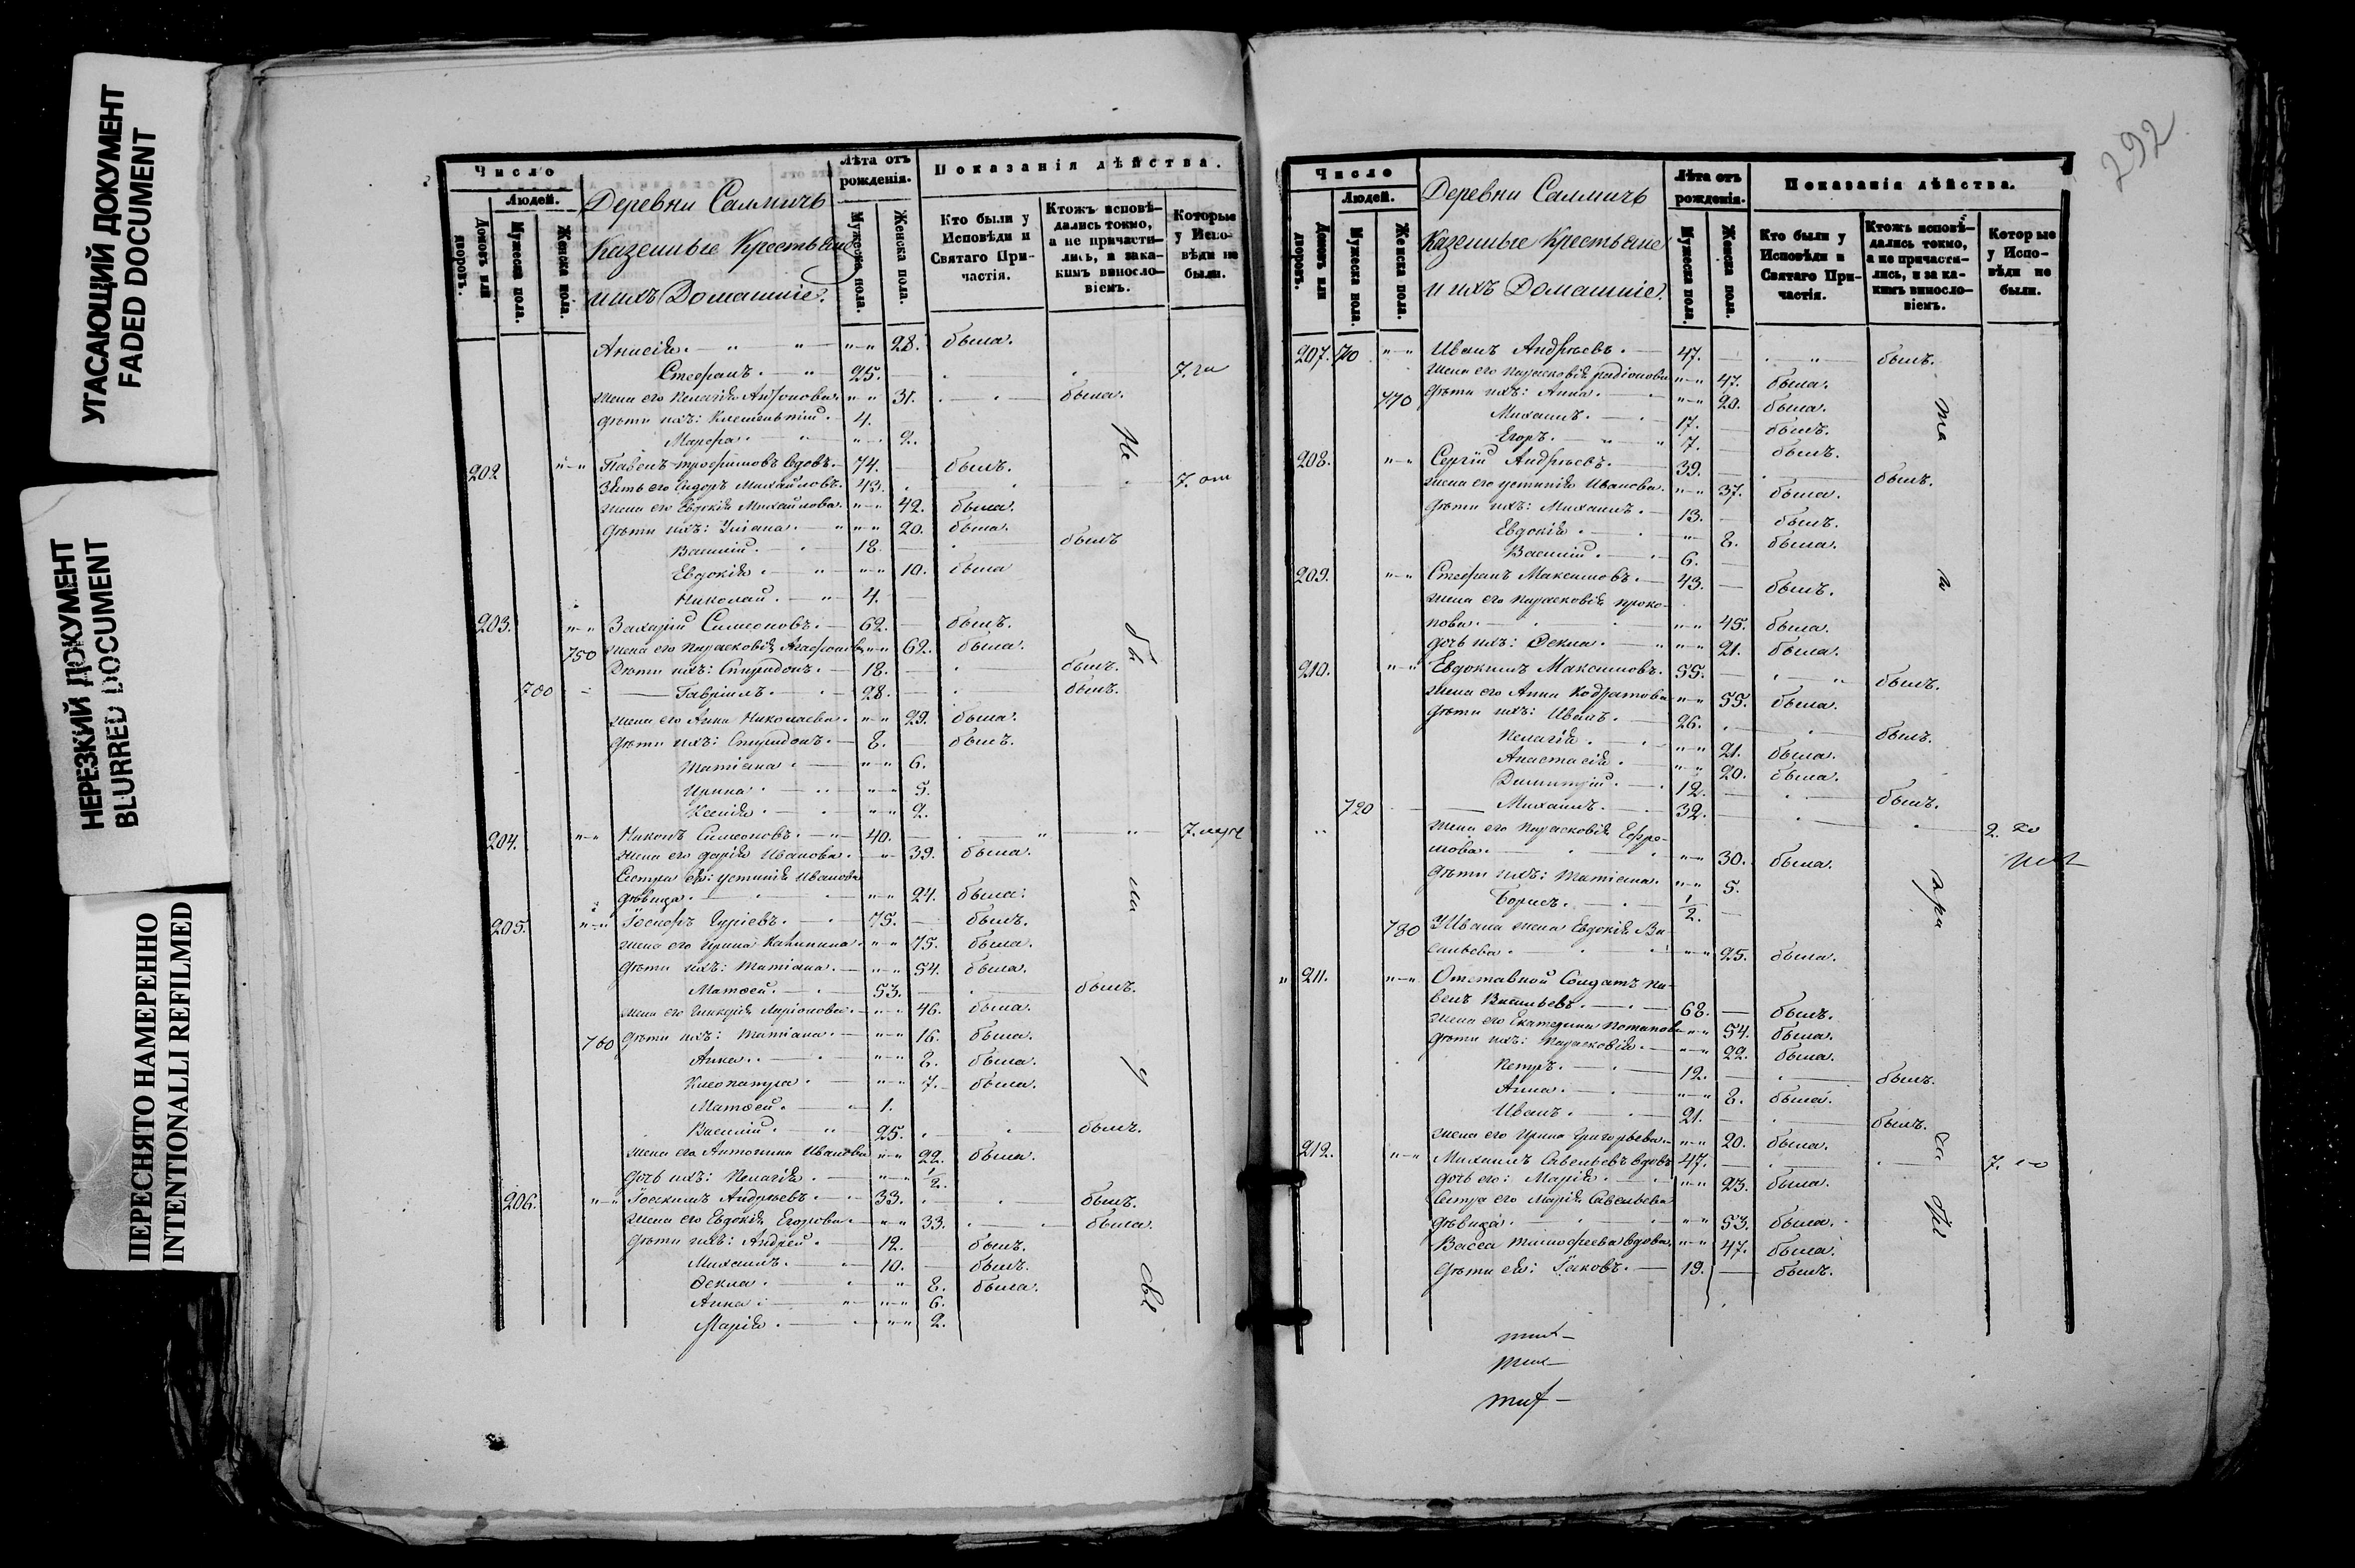 УГАСАЮЩИЙ ДОКУМЕНТ
FADED DOCUMENT
НЕРЕЗКИЙ ДОКУМЕНТ
BLURRED DOCUMENT
ПЕРЕСНЯТО НАМЕРЕННО
INTENTIONALLI REFILMED
Число
Людей.
Домовъ или дворовъ.
Мужеска пола.
Женска пола.
Деревни Саммичь
Казенные Крестьяне
и ихъ Домашніе.
Лѣта отъ рожденія.
Мужеска пола.
Женска пола.
Показанія дѣйства.
Кто были у Исповѣди и Святаго Причастія.
Ктожъ исповѣдались токмо, а не причастились, и за какимъ винословіемъ.
Которые у Исповѣди не были.
Анисія. 28. была.
Стефанъ. 25. 7.
жена его Пелагія 31. была.
дѣти ихъ: Климентій. 4.
Марфа. 2.
202 Павелъ Трофимовъ вдовъ. 74. былъ.
Зять его Сидоръ Михайловъ. 43. 7.
жена его Евдокія Михайлова. 42. была.
дѣти ихъ: Уліана. 20. была.
Василій. 18. былъ
Евдокія. 10. была
Николай. 4.
203. Захарій Симеоновъ. 62. былъ.
750 жена его Парасковія 62. была.
Дѣти ихъ: Спиридонъ. 18. былъ.
700 Гавріилъ. 28. былъ.
жена его Анна Николаева. 29. была.
дѣти ихъ: Спиридонъ. 8. былъ.
Татіана. 6.
Ирина. 5.
Ксенія. 2.
204. Никонъ Симеоновъ. 40. 7.
жена его Дарія Иванова. 39. была.
Сестра ея: Устинія Иванова
дѣвица. 24. была.
205. Іосифъ Гуріевъ. 75. былъ.
жена его Ирина 75. была.
дѣти ихъ: Татіана. 54. была.
Матѳей. 53. былъ.
жена его Гликерія 46. была.
760 дѣти ихъ: Татіана. 16. была.
Анна. 8. была.
Клеопатра. 7. была.
Матѳей. 1.
Василій. 25. былъ.
жена его Антонина Иванова 22. была.
дочь ихъ: Пелагія. 1/2.
206. Іоакимъ Андреевъ. 33. былъ.
жена его Евдокія Егорова. 33. была.
дѣти ихъ: Андрей. 12. былъ.
Михаилъ. 10. былъ.
Ѳекла. 8. была.
Анна. 6.
Марія. 2.
292
Число
Людей.
Домовъ или дворовъ.
Мужеска пола.
Женска пола.
Деревни Саммичь
Казенные Крестьяне
и ихъ Домашніе.
Лѣта отъ рожденія.
Мужеска пола.
Женска пола.
Показанія дѣйства.
Кто были у Исповѣди и Святаго Причастія.
Ктожъ исповѣдались токмо, а не причастились, и за какимъ винословіемъ.
Которые у Исповѣди не были.
207. 710 Иванъ Андреевъ. 47. былъ.
жена его Парасковія Радіонова 47. была.
770 дѣти ихъ: Анна. 20. была.
Михаилъ. 17. былъ.
Егоръ. 7. былъ.
208. Сергій Андреевъ. 39. былъ.
жена его Устинія Иванова. 37. была.
дѣти ихъ: Михаилъ. 13. былъ.
Евдокія. 8. была.
Василій. 6.
209. Стефанъ Максимовъ. 43. былъ.
жена его Парасковія Проко-
пова. 45. была.
дочь ихъ: Ѳекла. 21. была.
210. Евдокимъ Максимовъ. 55. былъ.
жена его Анна Кодратова 55. была.
дѣти ихъ: Иванъ. 26. былъ.
Пелагія. 21. была.
Анастасія. 20. была.
Димитрій. 12. былъ.
720 Михаилъ. 32. 2.
жена его Парасковія Ефре-
мова. 30. была.
дѣти ихъ: Татіана. 5.
Борисъ. 1/2.
780 У Ивана жена Евдокія Ва-
сильева. 25. была.
211. Отставной Солдатъ Па-
велъ Васильевъ. 68. былъ.
жена его Екатерина Потапова 54. была.
дѣти ихъ: Парасковія. 22. была.
Петръ. 12. былъ.
Анна. 8. была.
Иванъ. 21. былъ.
жена его Ирина Григорьева. 20. была.
212. Михаилъ Савельевъ вдовъ 47. 7.
дочь его: Марія. 23. была.
Сестра его Марія Савельева
дѣвица. 53. была.
Васса Тимофеева вдова. 47. была.
дѣти ея: Іаковъ. 19. былъ.